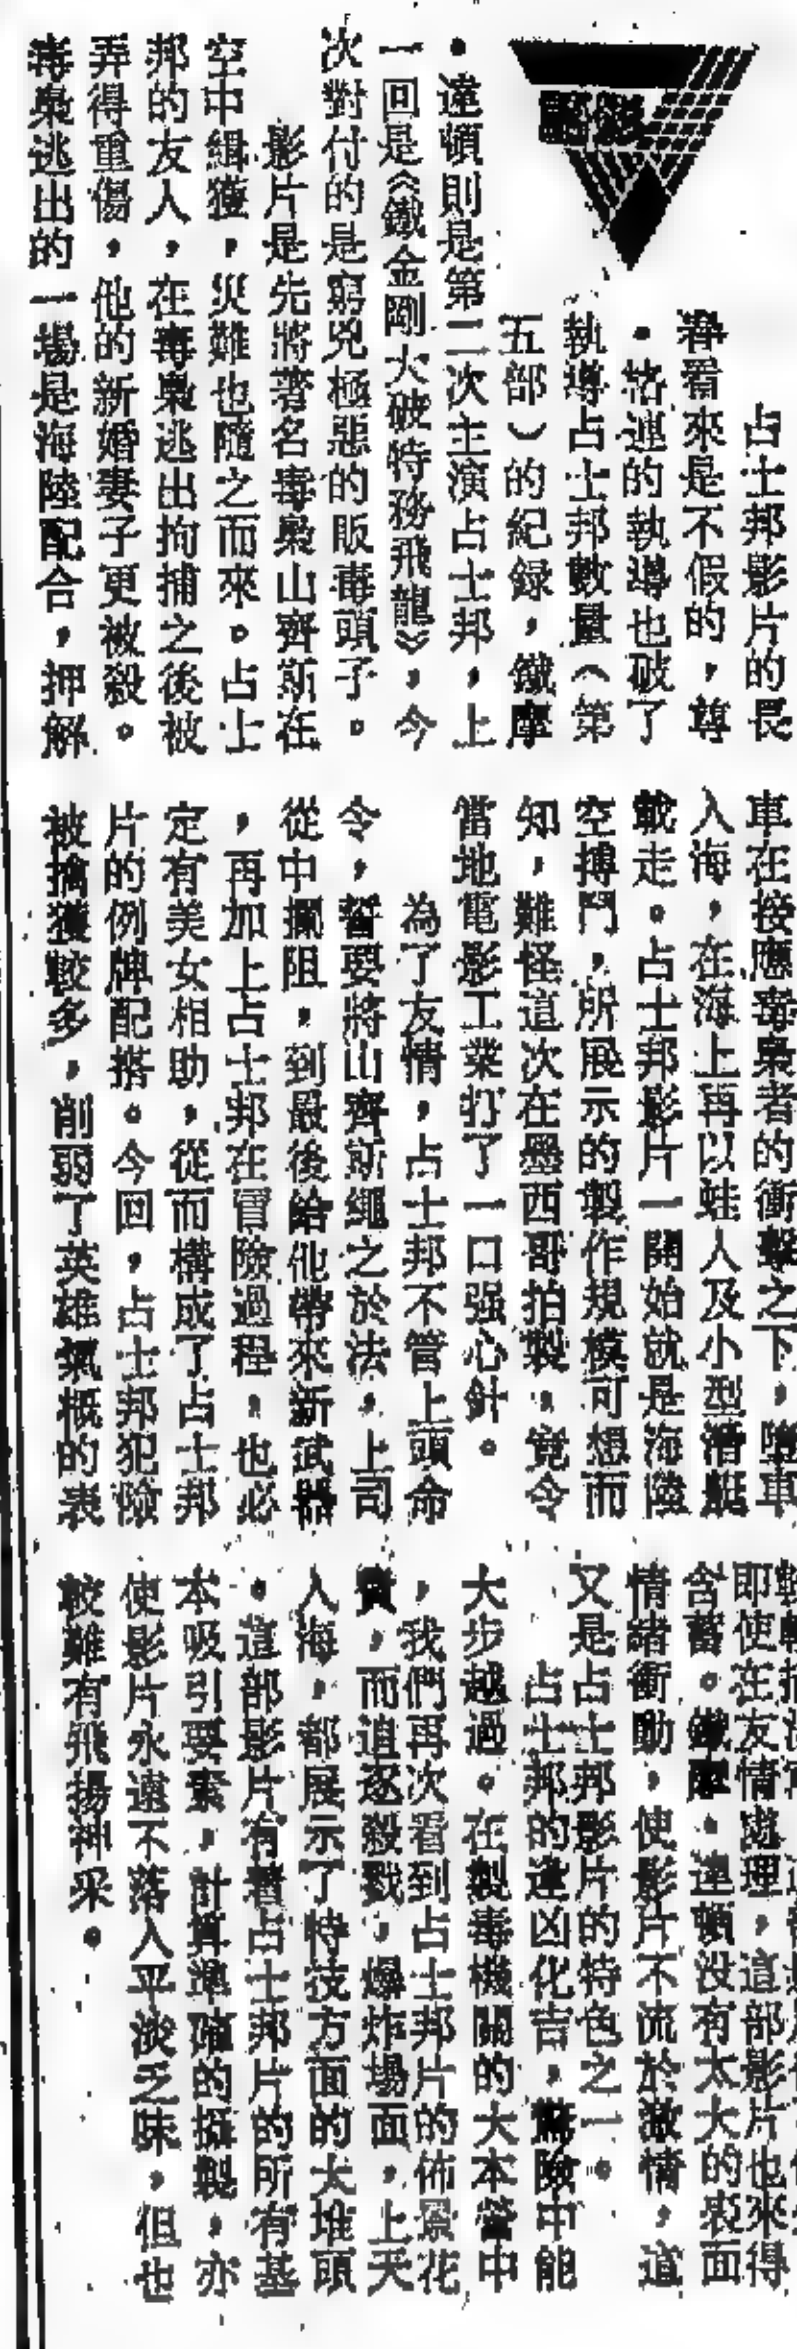 占士邦影片的長
春看來是不假的，尊
・格連的執導也破了
執導占士邦數量（第
五部）的紀録，鐵摩
・達頓則是第二次主演占士邦，上
一回是《鐵金剛大破特務飛龍》，今
次對付的是窮兇極惡的販毒頭子。
影片是先將著名毒梟山齊斯在
空中緝獲，災難也隨之而來。占士
邦的友人，在毒梟逃出拘捕之後被
弄得重傷，他的新婚妻子更被殺。
毒梟逃出的一場是海陸配合，押解
車在接應毒梟者的衝擊之下，墮車
入海，在海上再以蛙人及小型潛艇
載走。占士邦影片一開始就是海陸
空搏鬥，所展示的製作規模可想而
知，難怪這次在墨西哥拍製，竟令
當地電影工業打了一口强心針。
為了友情，占士邦不管上頭命
令，誓要將山齊斯繩之於法，上司
從中攔阻，到最後給他帶來新武器
，再加上占士邦在冒險過程，也必
定有美女相助，從而構成了占士邦
片的例牌配搭。今回，占士邦犯險
被擒獲較多，削弱了英雄氣概的表
即使在友情處理，這部影片也來得
含蓄。鐵摩・達頓没有太大的表面
情緒衝動，使影片不流於激情，這
又是占士邦影片的特色之一。
占士邦的逢凶化吉，驚險中能
大步越過。在製毒機關的大本營中
，我們再次看到占士邦片的佈景花
費，而追逐殺戮，爆炸場面，上天
入海，都展示了特技方面的大堆頭
。這部影片有着占士邦片的所有基
本吸引要素，計算準確的攝製，亦
使影片永遠不落入平淡乏味，但也
較難有飛揚神采。